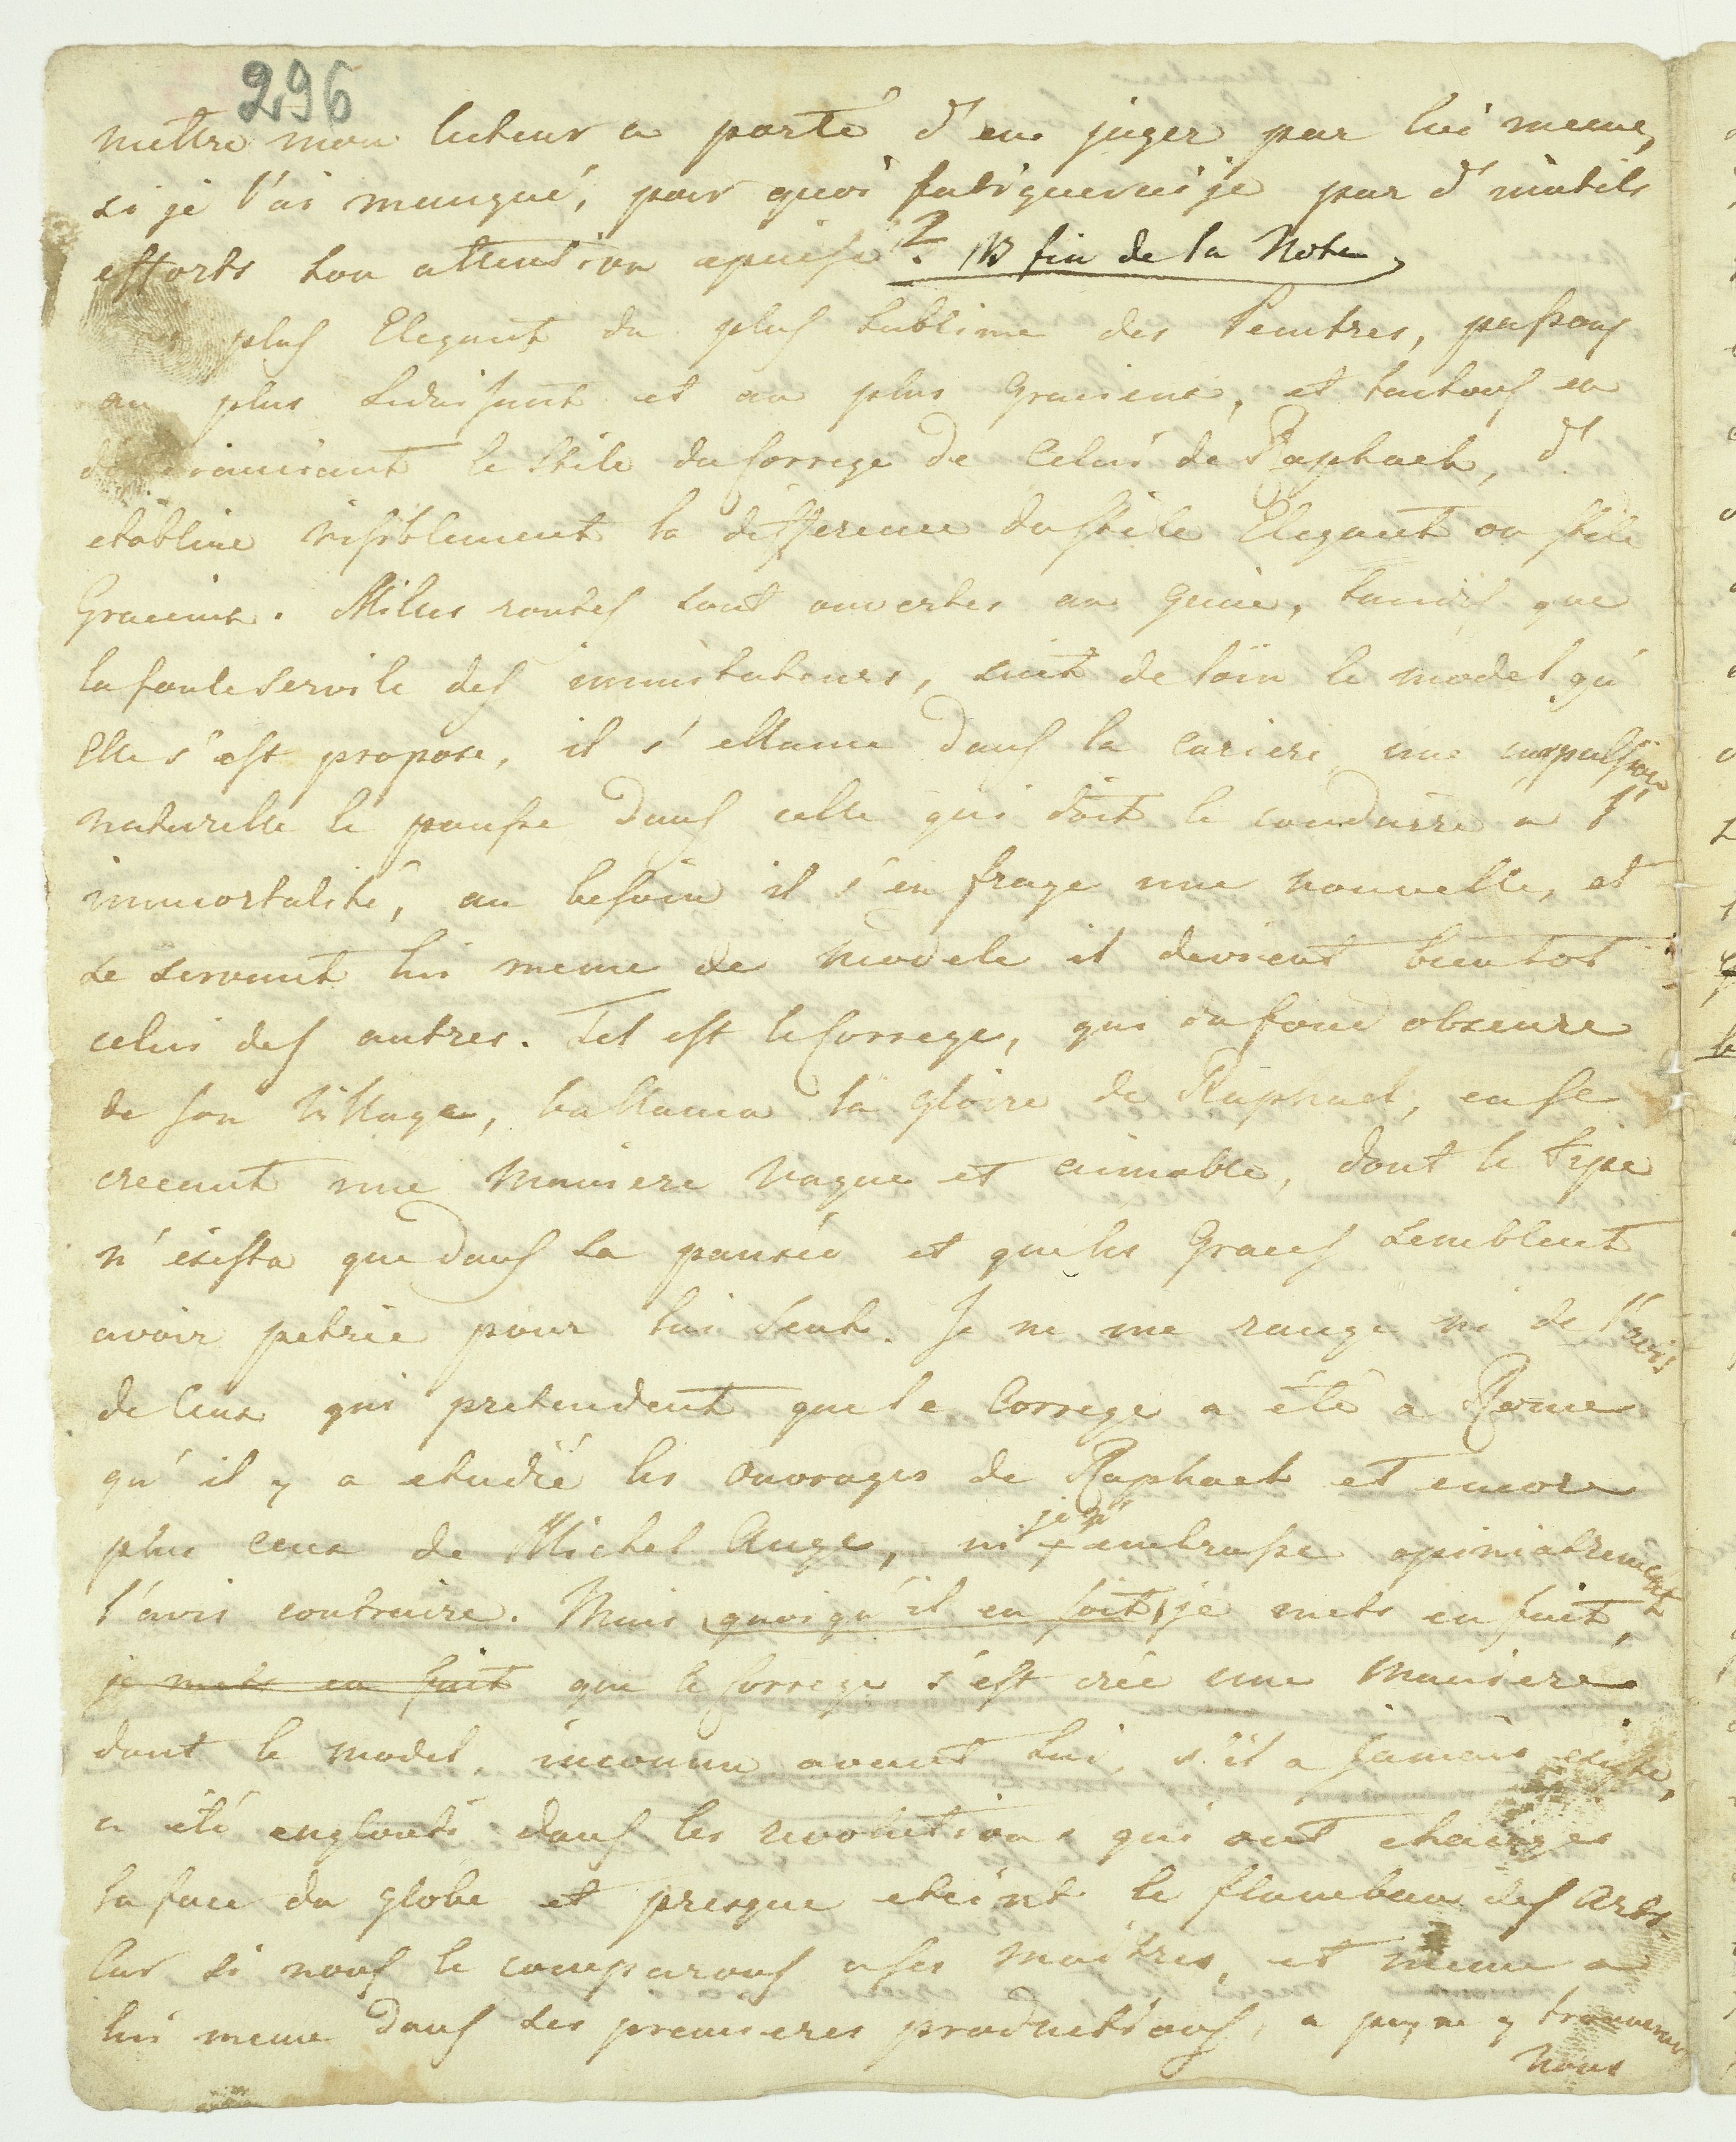 296
mettre mon lecteur a porté d'en juger par lui meme,
si je l'ai manqué, pour quoi fatiguerai je par d'inutils
efforts son attention epuisé? NB fin de la Note,
plus Elegant du plus sublime des Peintres, passons
au plus seduisant et au plus Gracieux, et tachons en
le Stile du Correge de celui de Raphael, d'
etablire visiblement la difference du stile Elegant au stile
Gracieux. Milles routes sont ouvertes au genie, tandis que
la foule servile des immitateurs, suit de loin le model qu'
Elle s'est propose, il s'ellance dans la cariere, une impulsion
naturelle le pousse dans celle qui doit le conduire a l'
immortalité, au besoin il s'en fraye une nouvelle, et
se servant lui meme de modele il devient bientot
celui des autres. Tel est le Correge, qui du fond obscure
de son village, ballanca la gloire de Raphael, en se
creeant une maniere vague et aimable, dont le tipe
n'existа que dans sa pansée et que les Graces semblent
avoir petrie pour lui seul. Je ne me range ni de l'avis
de ceux qui pretendent que le Correge a été a Rome
qu'il y a etudié les ouvrages de Raphael et encore
plus ceux de Michel Ange, ni je n'embrasse opiniatrement
l'avis contraire. Mais quoiqu'il en soit, je mets en fait,
je mets en fait que le Correge s'est crée une maniere
dont le model, inconnu avant lui, s'il a jamais existe,
a été englouti dans les revolutions qui ont changes
la face du globe et presque eteint le flambeau des Arts.
Car si nous le comparons a ses maitres, et meme a
lui meme dans ses premieres productions, a peyne y trouverons
nous